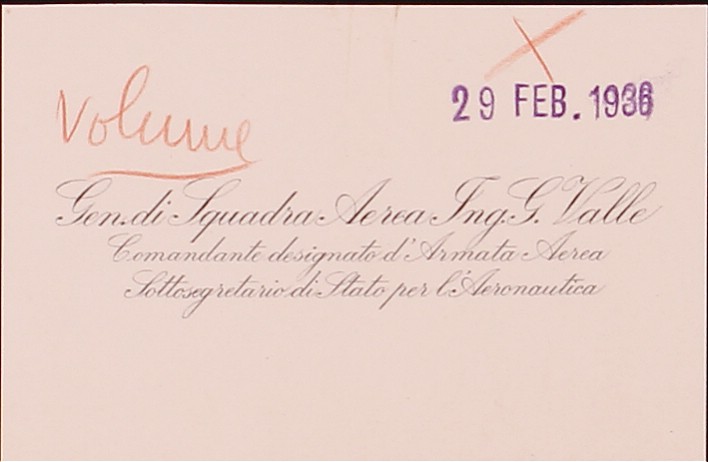 29 FEB. 1936
Volume
Gen. di Squadra Aerea Ing. G. Valle
Comandante designato d'Armata Aerea
Sottosegretario di Stato per l'Aeronautica